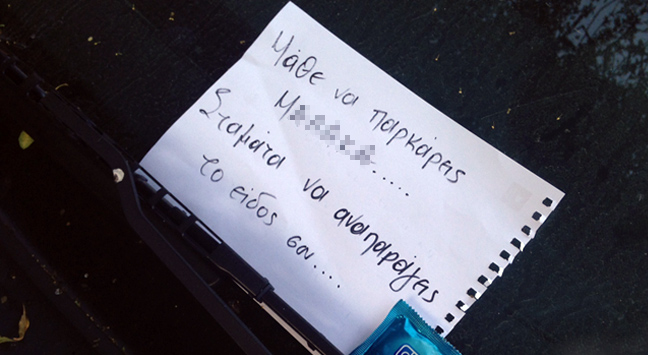 Μάθε να παρκάρεις
Μ
.....
Σταμάτα να αναπαράγεις
το είδος σου....